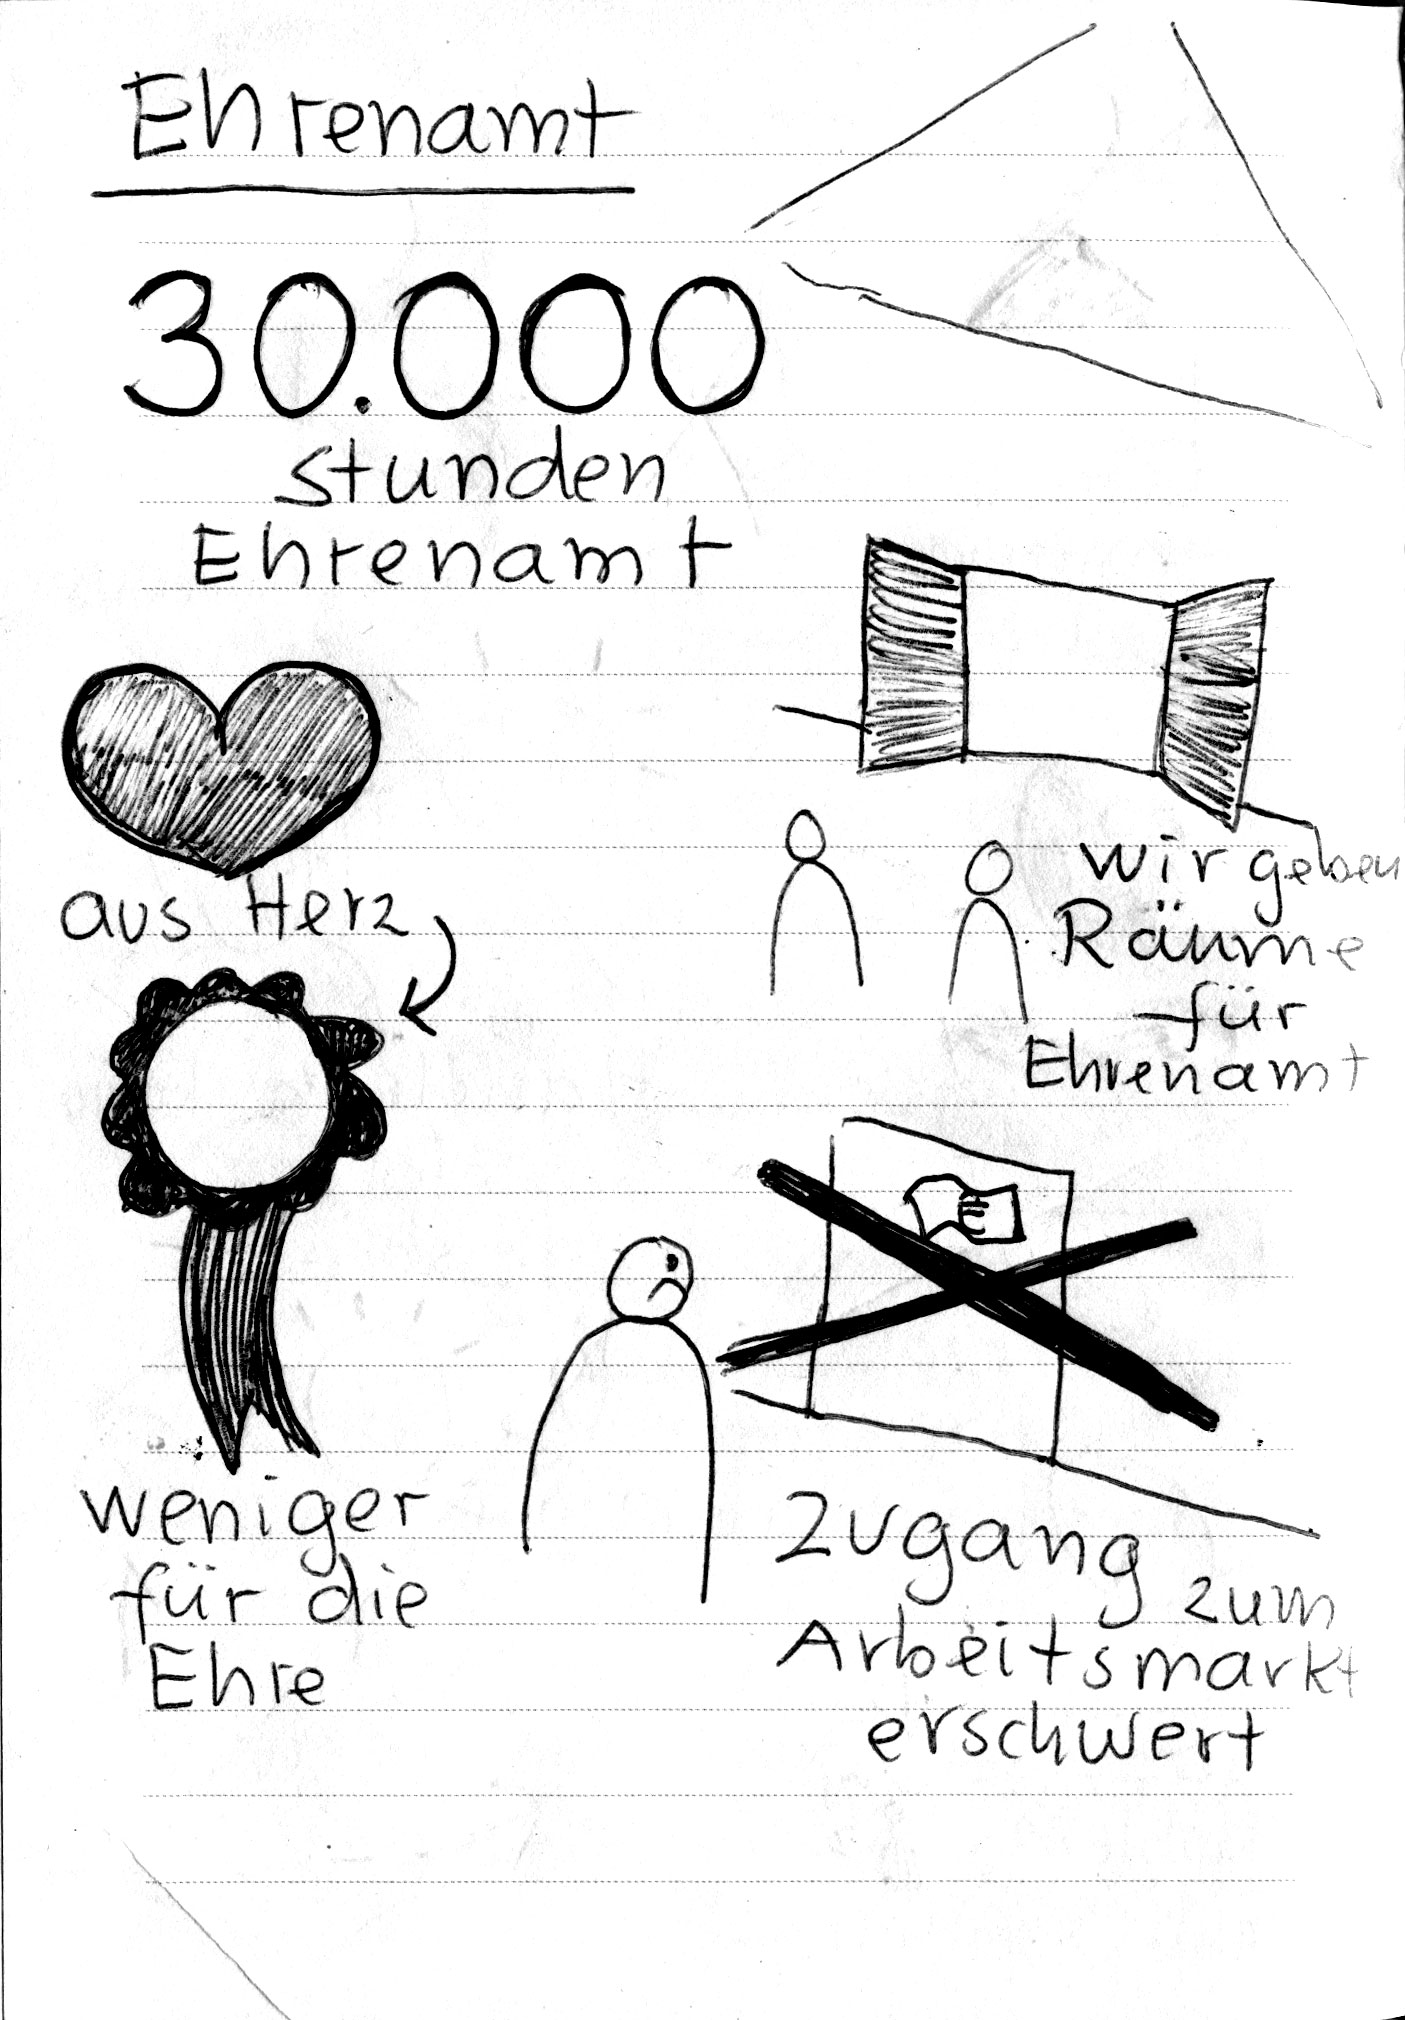 Ehrenamt
30.000
stunden
Ehrenamt
aus Herz
weniger
für die
Ehre
wir geben
Räume
für
Ehrenamt
€
Zugang
zum
Arbeitsmarkt
erschwert